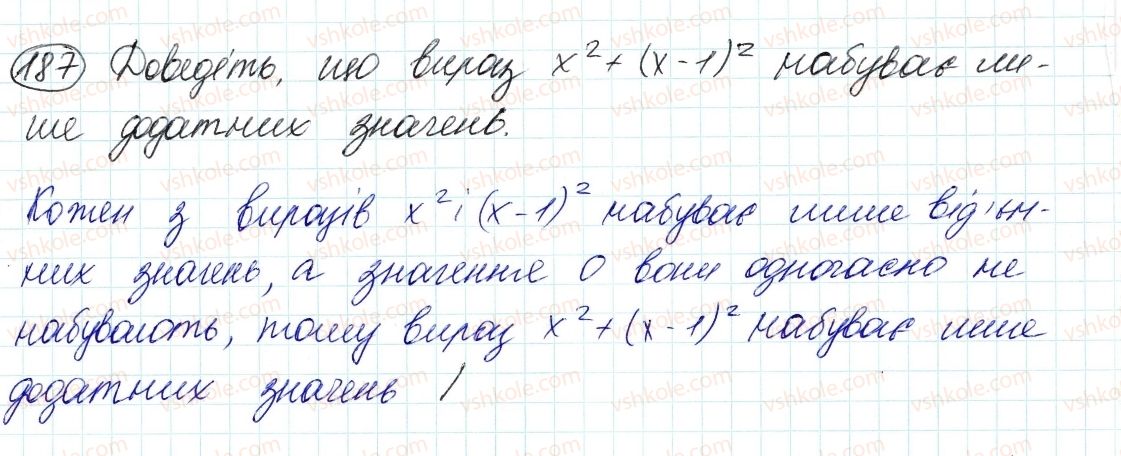 187 Доведіть, що вираз x² + (x - 1)² набуває ли-
ше додатних значень.
Кожен з виразів x² і (x - 1)² набуває лише від'єм-
них значень, а значення 0 вони одночасно не
набувають, тому вираз x² + (x - 1)² набуває лише
додатних значень /